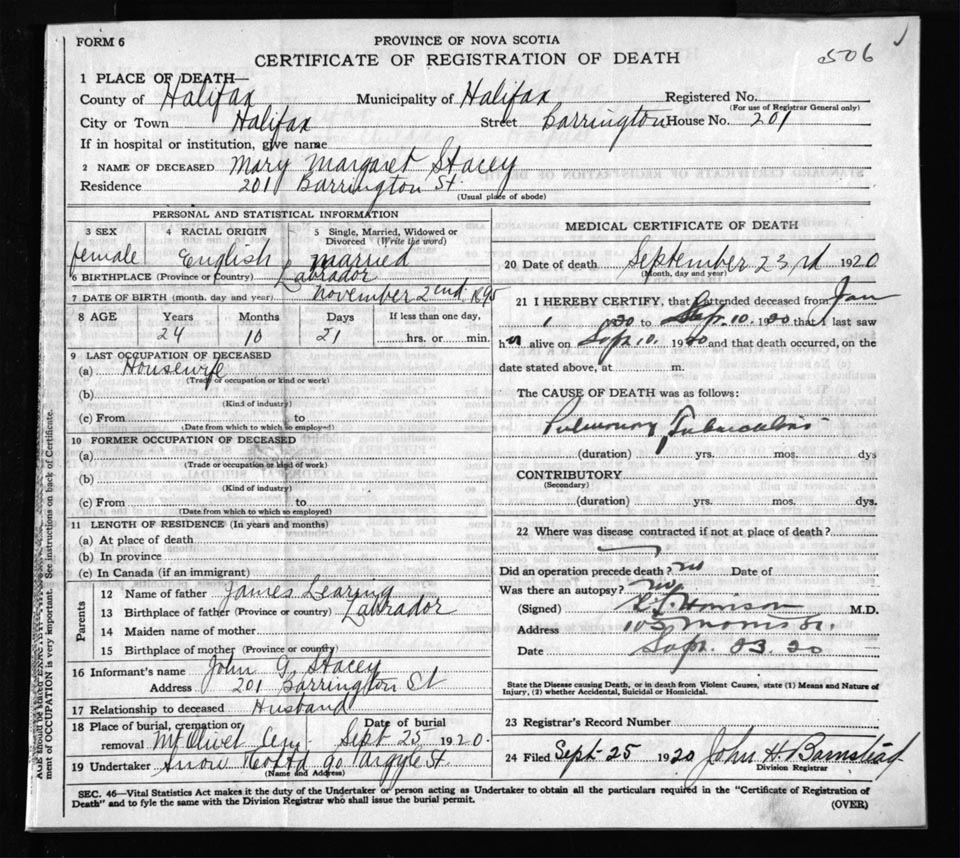 FORM 6
PROVINCE OF NOVA SCOTIA
CERTIFICATE OF REGISTRATION OF DEATH
506
1 PLACE OF DEATH—
County of Halifax Municipality of Halifax Registered No.
(For use of Registrar General only)
City or Town Halifax Street Barrington House No. 201
If in hospital or institution, give name
2 NAME OF DECEASED Mary Margaret Stacey
Residence 201 Barrington St.
(Usual place of abode)
PERSONAL AND STATISTICAL INFORMATION
3 SEX 4 RACIAL ORIGIN 5 Single, Married, Widowed or Divorced (Write the word)
female English married
6 BIRTHPLACE (Province or Country) Labrador
7 DATE OF BIRTH (month, day and year) November 2nd 1895
8 AGE Years Months Days If less than one day,
24 10 21 hrs. or min.
9 LAST OCCUPATION OF DECEASED
(a) Housewife
(Trade or occupation or kind or work)
(b)
(Kind of industry)
(c) From to
(Date from which to which so employed)
10 FORMER OCCUPATION OF DECEASED
(a)
(Trade or occupation or kind of work)
(b)
(Kind of industry)
(c) From to
(Date from which to which so employed)
11 LENGTH OF RESIDENCE (In years and months)
(a) At place of death
(b) In province
(c) In Canada (if an immigrant)
Parents
12 Name of father James Learing
13 Birthplace of father (Province or country) Labrador
14 Maiden name of mother
15 Birthplace of mother (Province or country)
16 Informant's name John G. Stacey
Address 201 Barrington St
17 Relationship to deceased Husband
18 Place of burial, cremation or removal Mt Olivet Cem. Date of burial Sept 25 1920.
19 Undertaker Snow Co Ltd 90 Argyle St.
(Name and Address)
MEDICAL CERTIFICATE OF DEATH
20 Date of death September 23rd 1920
(Month, day and year)
21 I HEREBY CERTIFY, that I attended deceased from Jan
1 1920 to Sept. 10. 1920 that I last saw
her alive on Sept 10. 1920 and that death occurred, on the
date stated above, at m.
The CAUSE OF DEATH was as follows:
Pulmonary Tuberculosis
(duration) yrs. mos. dys
CONTRIBUTORY
(Secondary)
(duration) yrs. mos. dys.
22 Where was disease contracted if not at place of death?
Did an operation precede death? no Date of
Was there an autopsy? no
(Signed) Morrison M.D.
Address 103 Morris St.
Date Sept. 23. 20
State the Disease causing Death, or in death from Violent Causes, state (1) Means and Nature of
Injury, (2) whether Accidental, Suicidal or Homicidal.
23 Registrar's Record Number
24 Filed Sept 25 1920 John H. Barnstead
Division Registrar
SEC. 46—Vital Statistics Act makes it the duty of the Undertaker or person acting as Undertaker to obtain all the particulars required in the "Certificate of Registration of
Death" and to fyle the same with the Division Registrar who shall issue the burial permit.
(OVER)
AGE should be stated EXACTLY.
ment of OCCUPATION is very important. See instructions on back of Certificate.